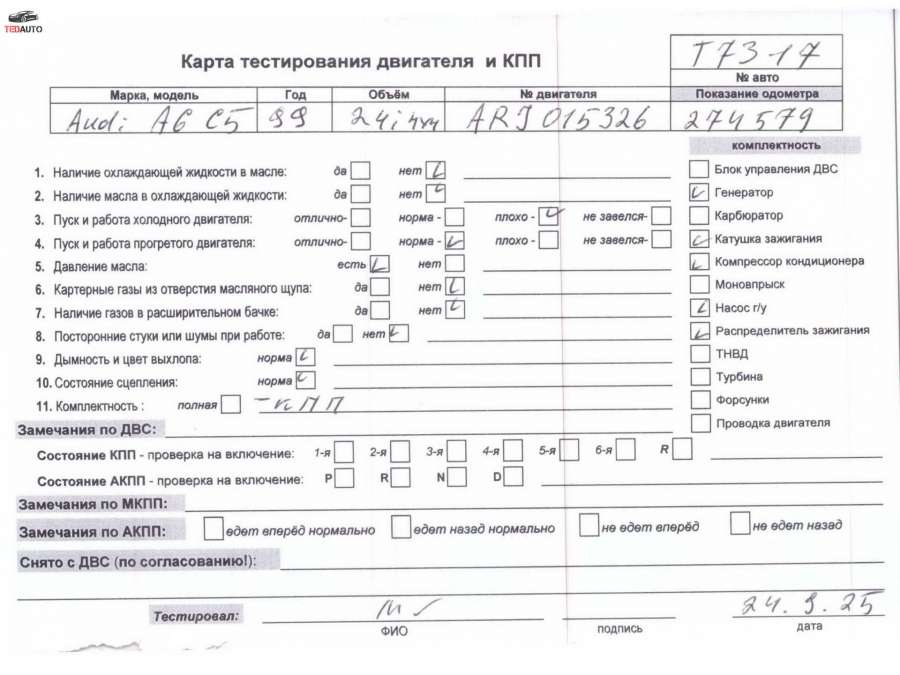 TEDAUTO
Карта тестирования двигателя и КПП
T73-17
№ авто
Марка, модель Год Объём № двигателя Показание одометра
Audi A6 C5 99 2.4i 4x4 ARJ 015326 274579
комплектность
1. Наличие охлаждающей жидкости в масле: да нет
Блок управления ДВС
2. Наличие масла в охлаждающей жидкости: да нет
Генератор
3. Пуск и работа холодного двигателя: отлично- норма - плохо - не завелся-
Карбюратор
4. Пуск и работа прогретого двигателя: отлично- норма - плохо - не завелся-
Катушка зажигания
5. Давление масла: есть нет
Компрессор кондиционера
6. Картерные газы из отверстия масляного щупа: да нет
Моновпрыск
7. Наличие газов в расширительном бачке: да нет
Насос г/у
8. Посторонние стуки или шумы при работе: да нет
Распределитель зажигания
9. Дымность и цвет выхлопа: норма
ТНВД
10. Состояние сцепления: норма
Турбина
11. Комплектность : полная - КПП
Форсунки
Замечания по ДВС:
Проводка двигателя
Состояние КПП - проверка на включение: 1-я 2-я 3-я 4-я 5-я 6-я R
Состояние АКПП - проверка на включение: P R N D
Замечания по МКПП:
Замечания по АКПП: едет вперёд нормально едет назад нормально не едет вперёд не едет назад
Снято с ДВС (по согласованию!):
Тестировал: 24.9.25
ФИО подпись дата